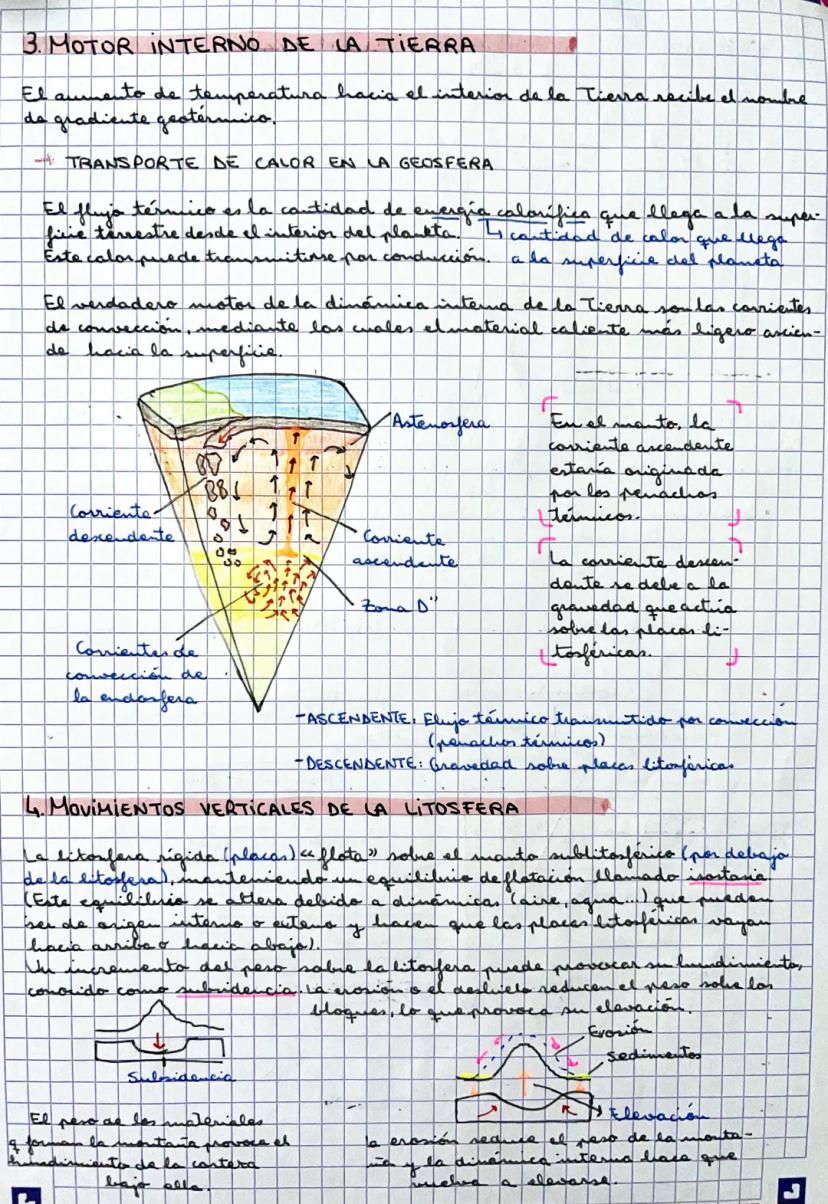 3. MOTOR INTERNO DE LA TIERRA
El aumento de temperatura hacia el interior de la Tierra recibe el nombre
de gradiente geotérmico.
→ TRANSPORTE DE CALOR EN LA GEOSFERA
El flujo térmico es la cantidad de energía calorífica que llega a la super-
ficie terrestre desde el interior del planeta. ↳ cantidad de calor que llega
Este calor puede transmitirse por conducción. a la superficie del planeta
El verdadero motor de la dinámica interna de la Tierra son las corrientes
de convección, mediante las cuales el material caliente más ligero ascien-
de hacia la superficie.
Astenosfera
Corriente
descendente
Corriente
ascendente
Zona D"
Corrientes de
convección de
la endosfera
En el manto, la
corriente ascendente
estaría originada
por los penachos
térmicos.
La corriente descen-
dente se debe a la
gravedad que actúa
sobre las placas li-
tosféricas.
-ASCENDENTE: Flujo térmico transmitido por convección
(penachos térmicos)
-DESCENDENTE: Gravedad sobre placas litosféricas
4. MOVIMIENTOS VERTICALES DE LA LITOSFERA
La litosfera rígida (placas) "flota" sobre el manto sublitosférico (por debajo
de la litosfera), manteniendo un equilibrio de flotación llamado isostasia
(Este equilibrio se altera debido a dinámicas (aire, agua...) que pueden
ser de origen interno o externo y hacen que las placas litosféricas vayan
hacia arriba o hacia abajo).
Un incremento del peso sobre la litosfera puede provocar su hundimiento,
conocido como subsidencia. La erosión o el deshielo reducen el peso sobre los
bloques, lo que provoca su elevación.
Subsidencia
Erosión
Sedimentos
Elevación
El peso de los materiales
q forman la montaña provoca el
hundimiento de la corteza
bajo ella.
la erosión reduce el peso de la monta-
ña y la dinámica interna hace que
vuelva a elevarse.